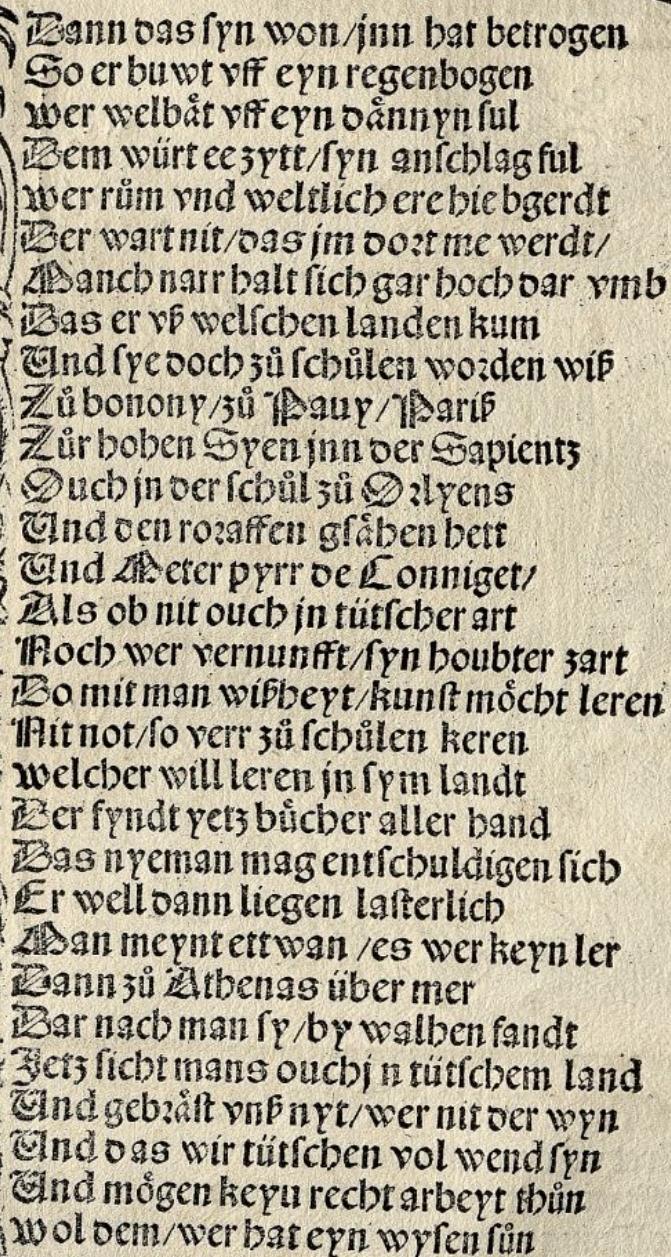 Dann das syn won/jnn hat betrogen
So er buwt vff eyn regenbogen
wer welbåt vff eyn dånnyn sul
Dem würt ee zytt/syn anschlag ful
wer rům vnd weltlich ere hie bgerdt
Der wart nit/das jm dort me werdt/
Manch narr halt sich gar hoch dar vmb
Das er vß welschen landen kum
Und sye doch zů schůlen worden wiß
Zů bonony/zů Pauy/Pariß
Zůr hohen Syen jnn der Sapientz
Ouch jn der schůl zů Orlyens
Und den roraffen gsåhen hett
Und Meter pyrr de Conniget/
Als ob nit ouch jn tütscher art
Noch wer vernunfft/syn houbter zart
Do mit man wißheyt/kunst möcht leren
Nit not/so verr zů schůlen keren
welcher will leren jn sym landt
Der fyndt yetz bůcher aller hand
Das nyeman mag entschuldigen sich
Er well dann liegen lasterlich
Man meynt ettwan /es wer keyn ler
Dann zů Athenas über mer
Dar nach man sy/by walhen fandt
Jetz sicht mans ouch j n tütschem land
Und gebråst vnß nyt/wer nit der wyn
Und das wir tütschen vol wend syn
Und mögen keyn recht arbeyt thůn
Wol dem/wer hat eyn wysen sůn